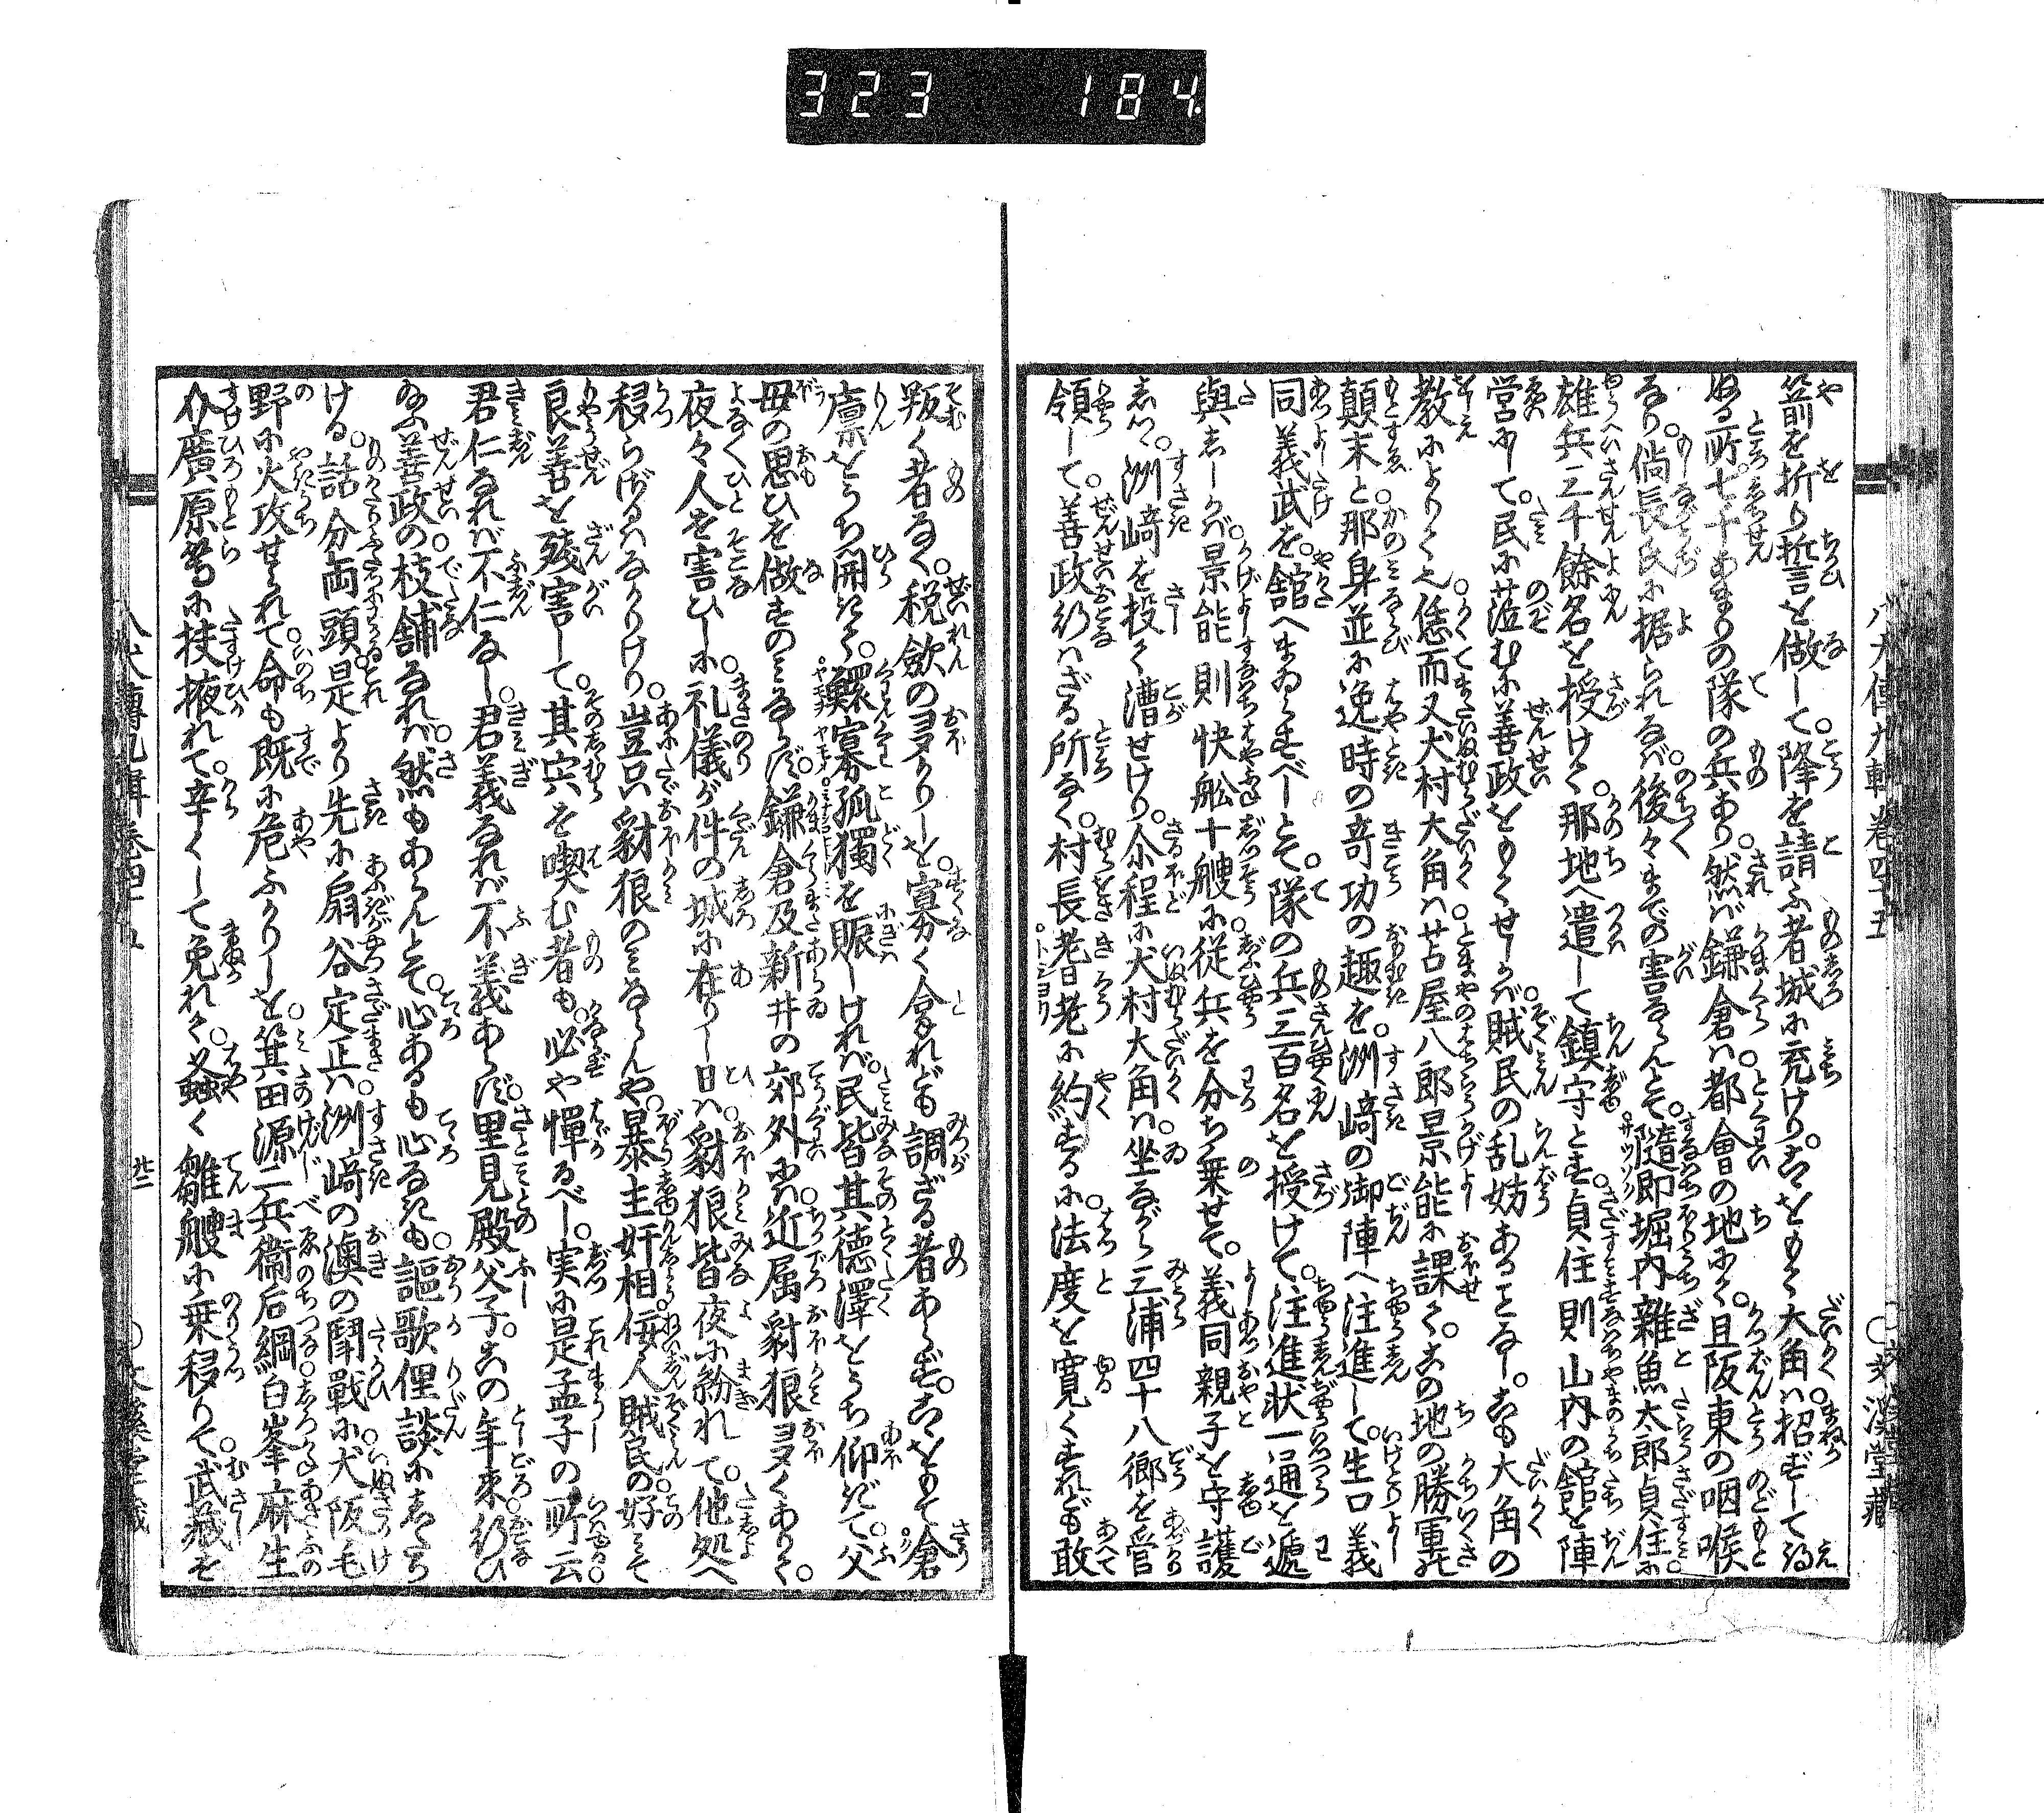 323 184
箭を折り誓言を做して。降を請ふ者城に充けり。是をもて大角は招ずして得
ぬる所。七千あまりの隊の兵あり。然ば鎌倉は。都會の地にて。且阪東の咽喉
なり。倘長氏に据られなば。後々までの害ならんとて。隨即堀内雜魚太郎貞住に。
雄兵三千餘名を授けて。那地へ遣して鎮守とす。貞住則山内の舘を陣
営にして。民に莅むに善政をもてせしかば。賊民の乱妨あることなし。是も大角の
教によりて也。恁而又犬村大角は。苫屋八郎景能に課て。这の地の勝軍の
顛末と。那身並に逸時の竒功の趣を。洲﨑の御陣へ注進して。生口義
同義武を。舘へまゐらすべしとて。隊の兵三百名を授けて。注進状一通を遞
與ししかば。景能則快舩十艘に。従兵を分ち乗せて。義同親子を守護
しつ。洲﨑を投て漕せけり。尒程に犬村大角は。坐ながら三浦四十八郷を管
領して。善政行はざる所なく。村長老曰老に約するに。法度を寛くすれども敢
叛く者なく。税歛の多かりしを。寡く合れども調ざる者あらず。是をもて倉
廪をうち開きて。鰥寡孤獨を賑しければ。民皆其徳澤をうち仰ぎて。父
母の思ひを做すのみならず。鎌倉及新井の郊外には。近属豺狼多くありて。
夜々人を害ひしに。礼儀が件の城に在りし日は。豺狼皆夜に紛れて。他処へ
移らざるはなかりけり。豈只豺狼のみならんや。暴主奸相佞人賊民の。好みて
良善を殘害して。其宍を喫む者も。必や憚るべし。実に是孟子の所云。
君仁なれば不仁なし。君義なれば不義あらず。里見殿父子。这の年来行ひ
給ふ善政の。枝舗なれば。然もあらんとて。心あるも心なきも。謳歌俚談にしたち
ける。話分両頭。是より先に扇谷定正は。洲﨑の澳の鬪戰に。犬阪毛
野に火攻せられて。命も既に危ふかりしを。箕田源二兵衞后綱。白峯麻生
介廣原們に扶掖れて。辛くして免れて。蚤く雛艘に乗移りて。武藏を
八犬傳九輯卷四十五
文溪堂藏
八犬傳九輯卷四十五
廿二
文溪堂藏